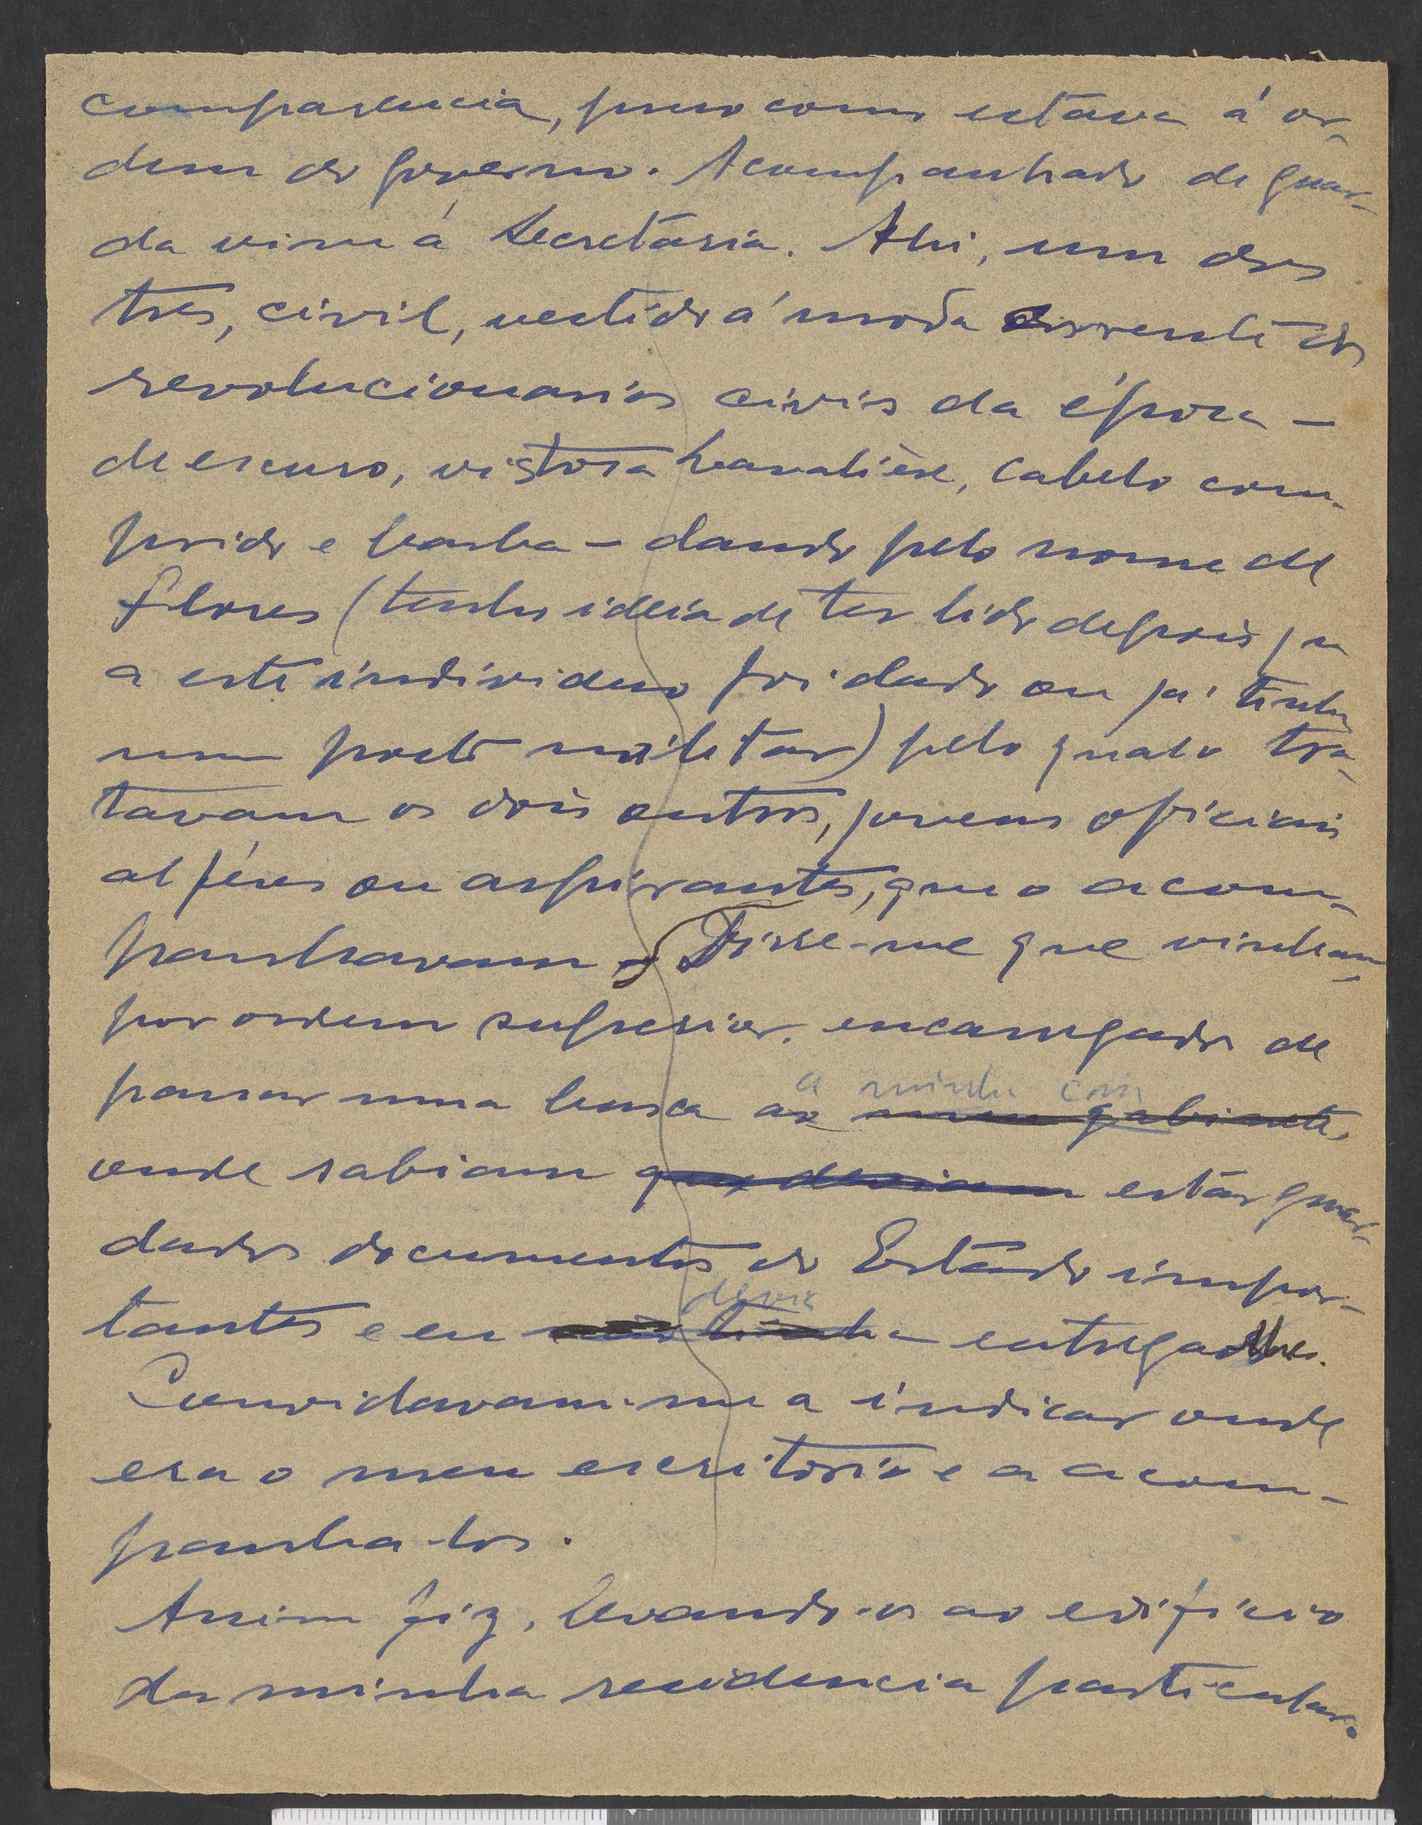 comparencia, preso como estava á or-
dem do governo. Acompanhado de guar-
da vim á Secretária. Ahi, um dos
tres, civil, vestido á moda corrente dos
revolucionarios civis da época —
de escuro, vistosa lavalière, cabelo com-
prido e barba — dando pelo nome de
Flores (tenho ideia de ter lido depois que
a este individuo foi dado ou já tinha
um posto militar) pelo qual o tra-
tavam os dois outros, jovens oficiais
alferes ou aspirantes, que o acom-
panhavam. Disse-me que vinham,
por ordem superior, encarregados de
passar uma busca ao meu gabinete,
a minha casa
onde sabiam que deviam estar guar-
dados documentos do Estado impor-
tantes e eu não tinha entregado
devia lhes.
Convidavam-me a indicar onde
era o meu escritorio e a acom-
panha-los.
Assim fiz, levando-os ao edificio
da minha residencia particular.